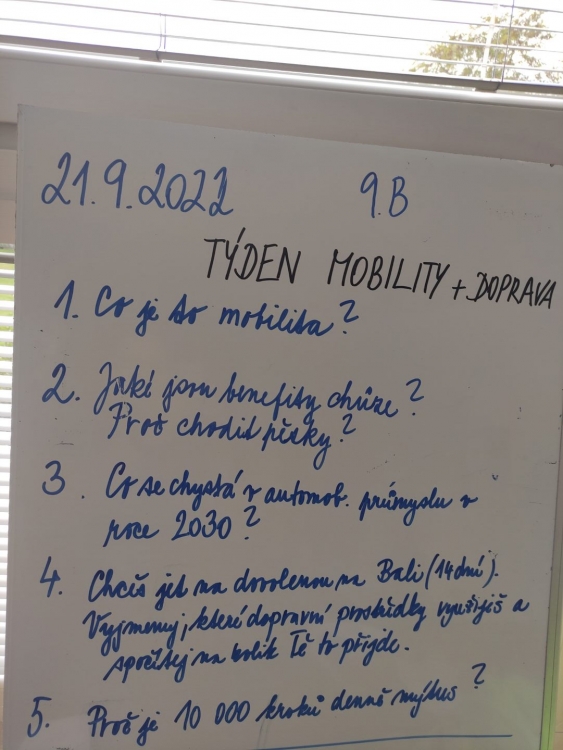 21.9.2022 9.B
TÝDEN MOBILITY + DOPRAVA
1. Co je to mobilita?
2. Jaké jsou benefity chůze?
Proč chodit pěšky?
3. Co se chystá v automob. průmyslu v
roce 2030?
4. Chceš jet na dovolenou na Bali (14 dní).
Vyjmenuj, které dopravní prostředky využiješ a
spočítej na kolik Tě to přijde.
5. Proč je 10 000 kroků denně mýtus?